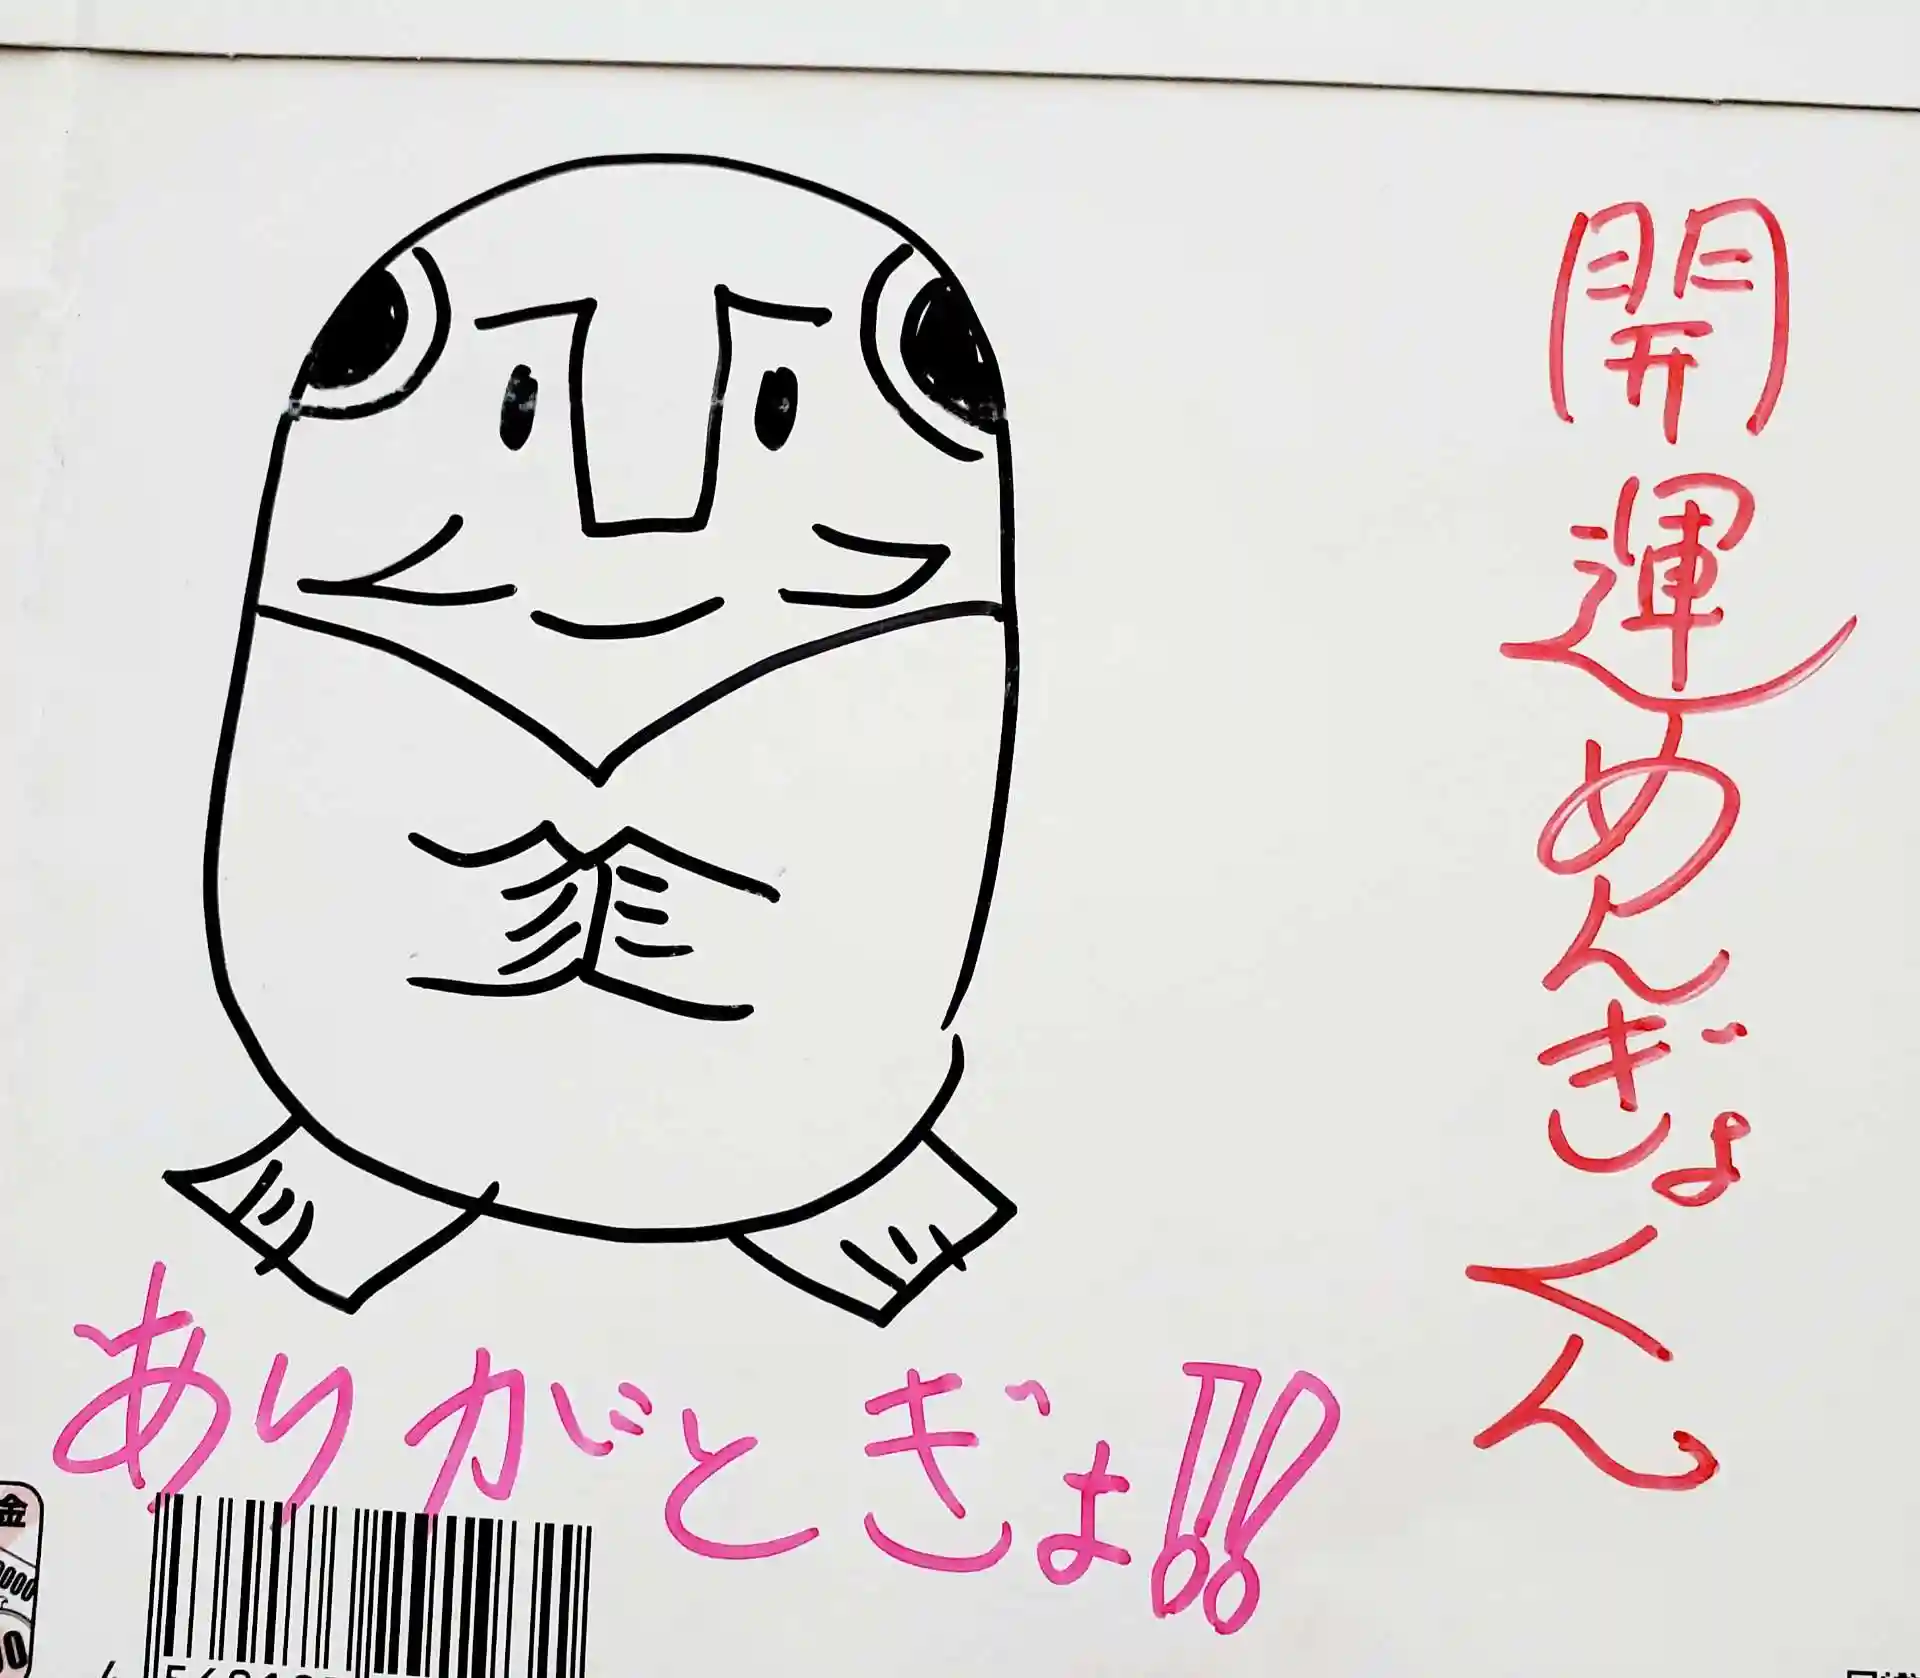 開運めんぎょくん
ありがとぎょ!!
金